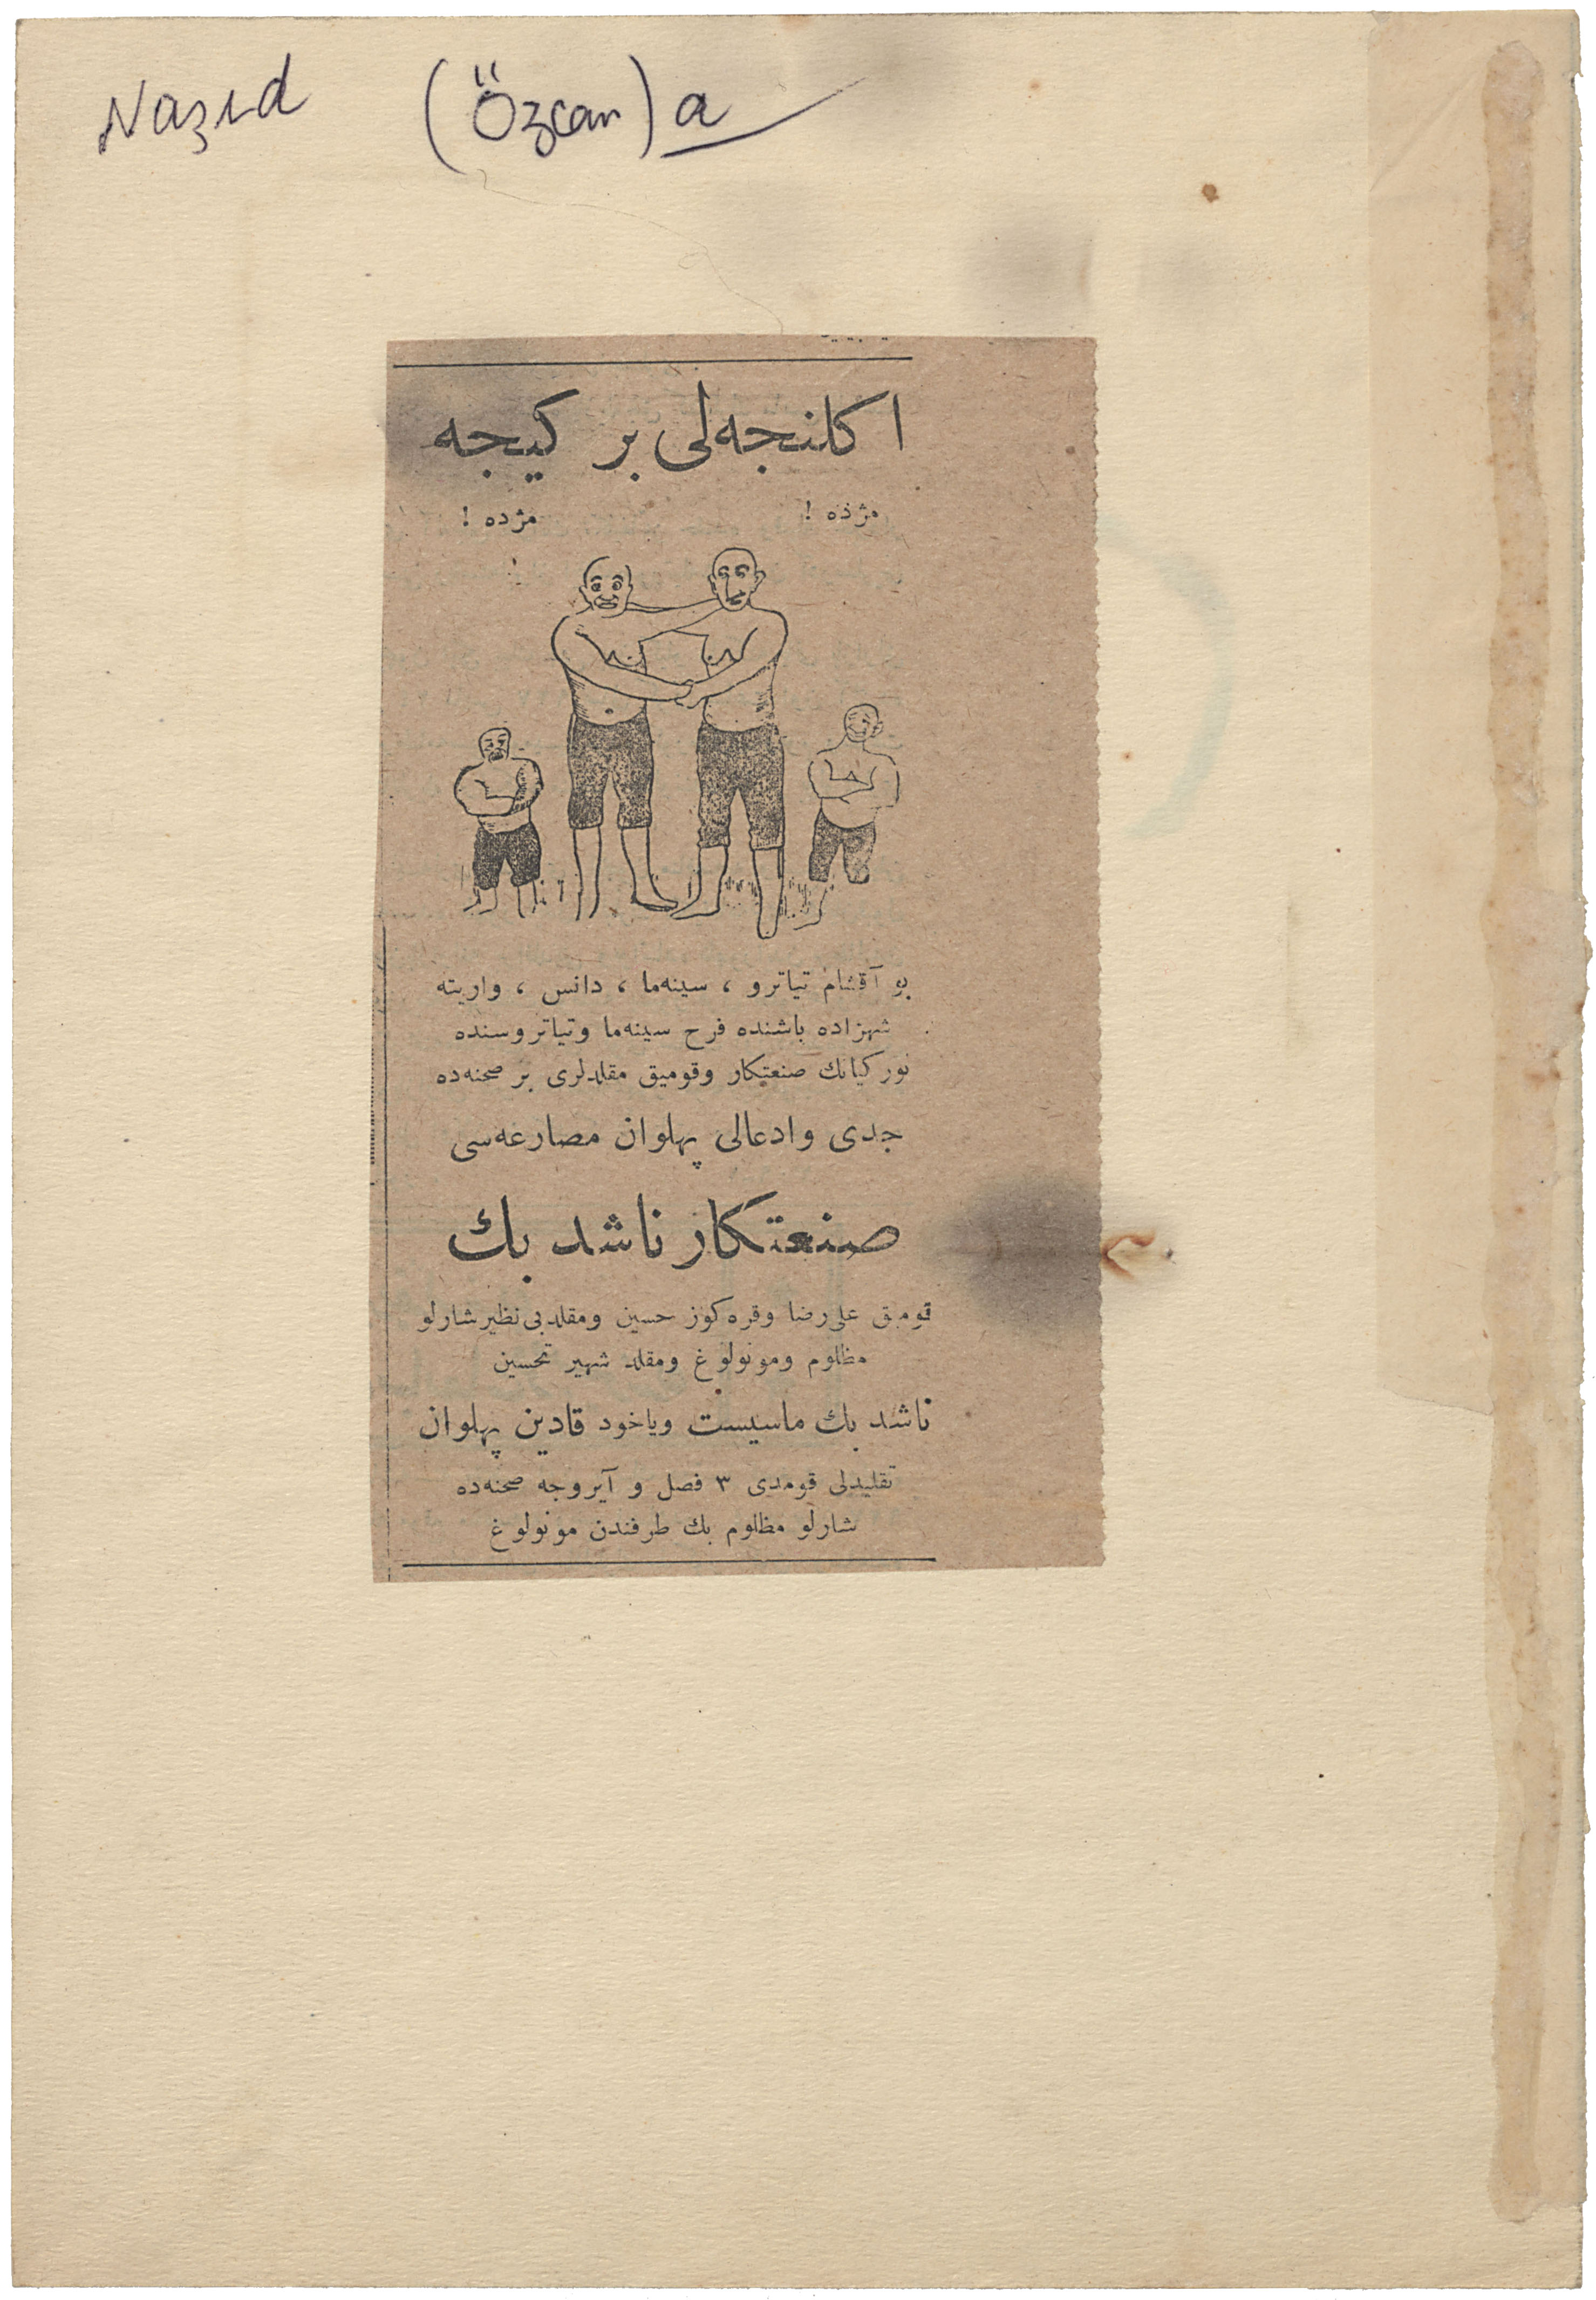 Nazıd (Özcan) a
اكلنجه‌لی بر كیجه
مژده ! مژده !
بو آقشام تیاترو ، سینه‌ما ، دانس ، واریته
شهزاده باشنده فرح سینه‌ما وتیاتروسنده
توركیانك صنعتكار وقومیق مقلدلری بر صحنه‌ده
جدی وادعالی پهلوان مصارعه‌سی
صنعتكار ناشد بك
قومیق علی رضا وقره كوز حسین ومقلد بی نظیر شارلو
مظلوم ومونولوغ ومقلد شهیر تحسین
ناشد بك ماسیست ویاخود قادین پهلوان
تقلیدلی قومدی ٣ فصل و آیروجه صحنه‌ده
شارلو مظلوم بك طرفندن مونولوغ